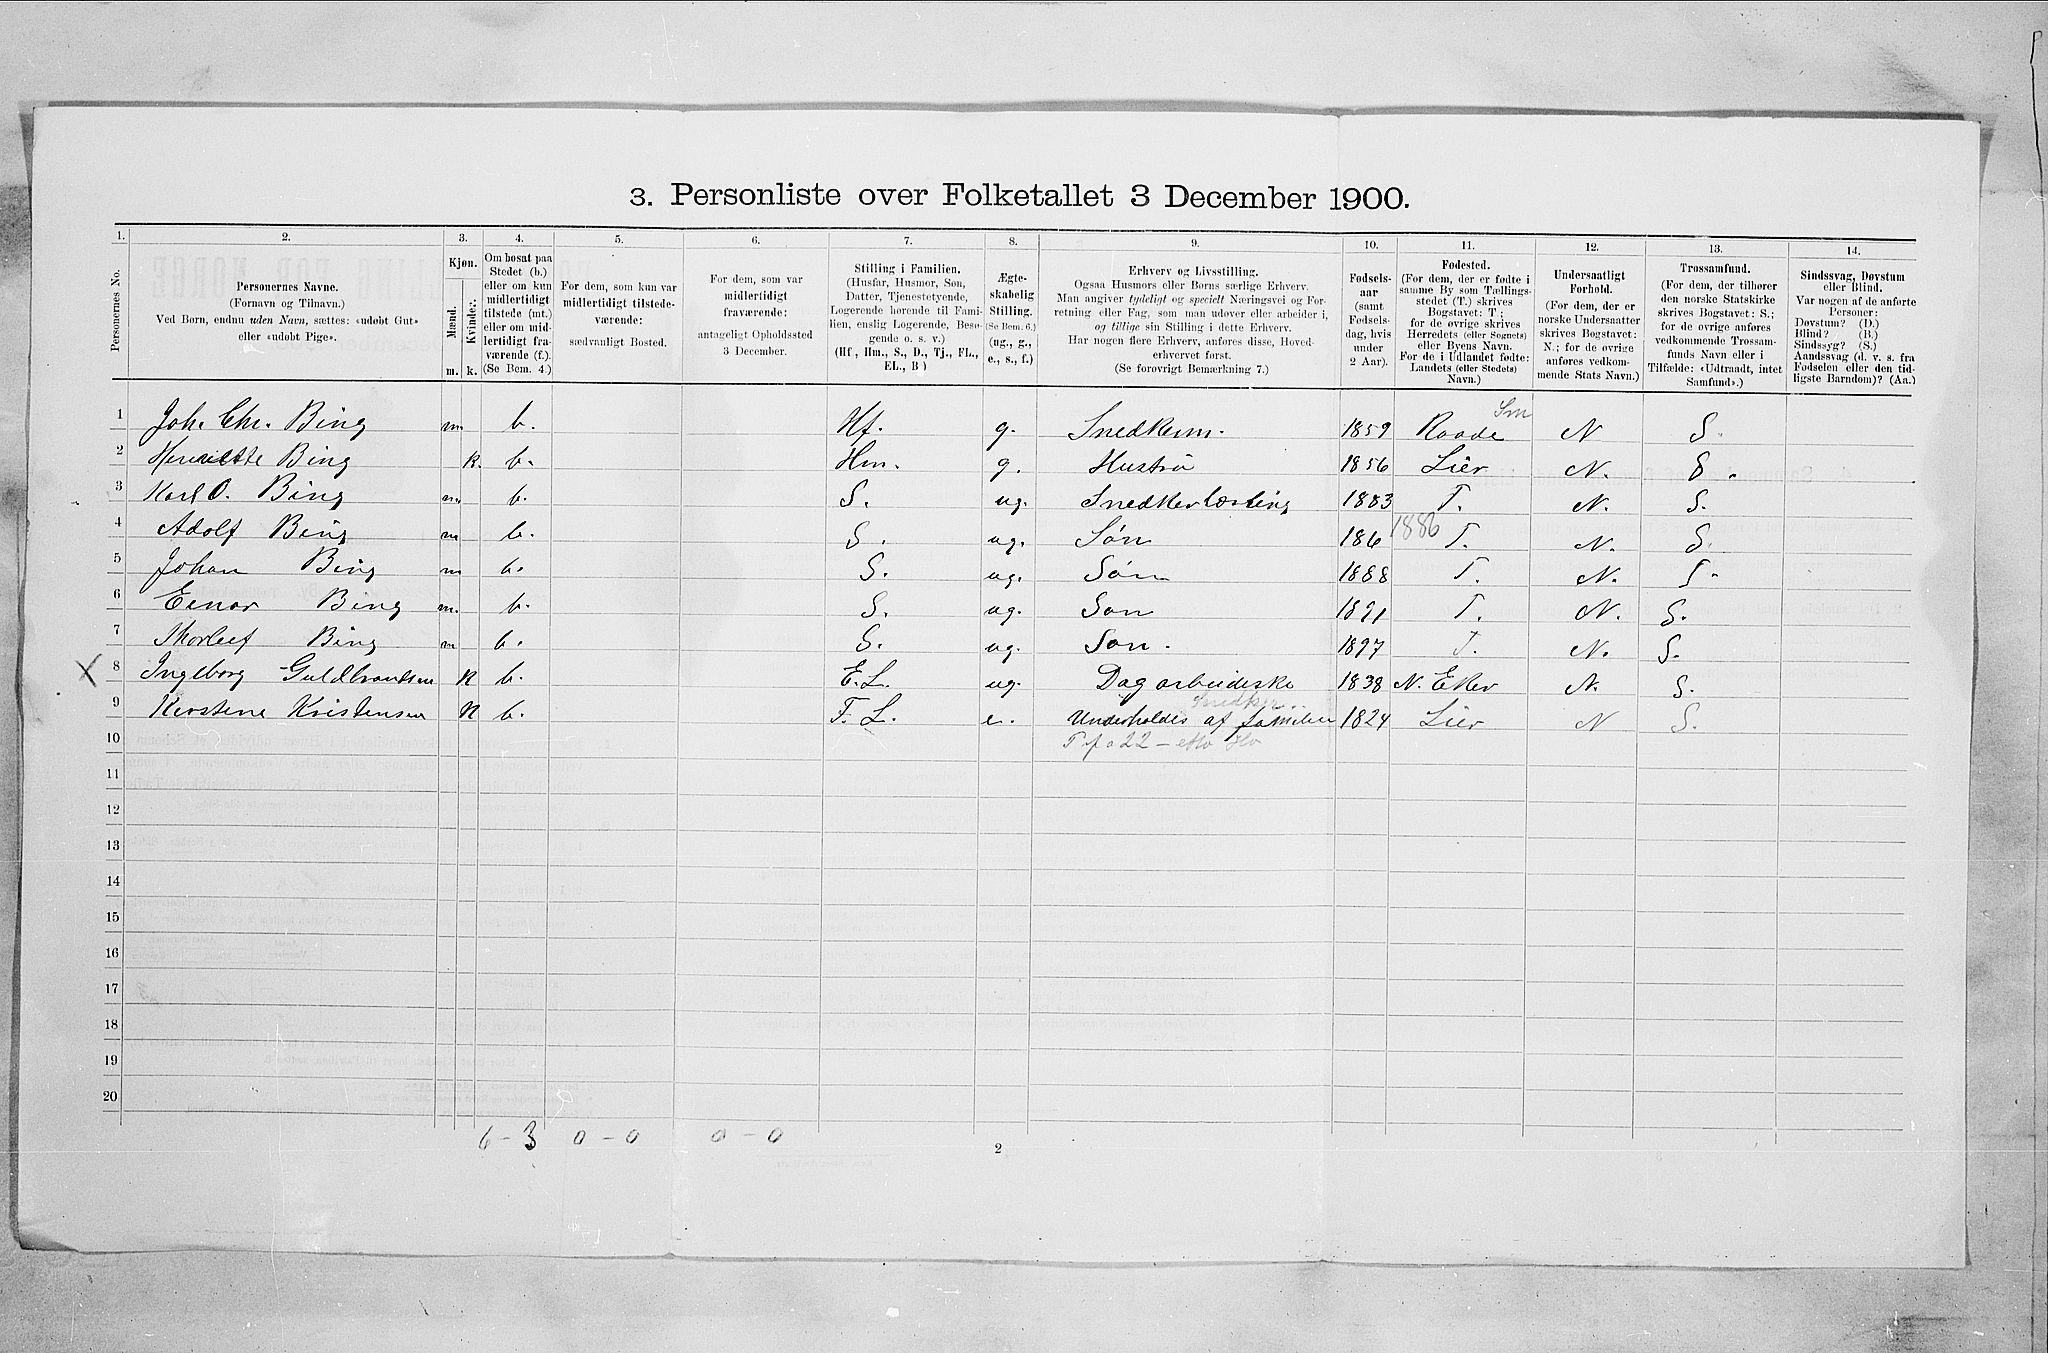 3. Personliste over Folketallet 3 December 1900.
1. 2. 3. 4. 5. 6. 7. 8. 9. 10. 11. 12. 13. 14.
Personernes No.
Personernes Navne.
(Fornavn og Tilnavn.)
Ved Børn, endnu uden Navn, sættes: «udøbt Gut»
eller «udøbt Pige».
Kjøn.
Mænd.
Kvinder.
m. k.
Om bosat paa
Stedet (b.)
eller om kun
midlertidigt
tilstede (mt.)
eller om mid-
lertidigt fra-
værende (f.).
(Se Bem. 4.)
For dem, som kun var
midlertidigt tilstede-
værende:
sædvanligt Bosted.
For dem, som var
midlertidigt
fraværende:
antageligt Opholdssted
3 December.
Stilling i Familien.
(Husfar, Husmor, Søn,
Datter, Tjenestetyende,
Logerende hørende til Fami-
lien, enslig Logerende, Besø-
gende o. s. v.)
(Hf, Hm., S., D., Tj., FL.,
EL., B)
Ægte-
skabelig
Stilling.
(Se Bem. 6.)
(ug., g.,
e., s., f.)
Erhverv og Livsstilling.
Ogsaa Husmors eller Børns særlige Erhverv.
Man angiver tydeligt og specielt Næringsvei og For-
retning eller Fag, som man udøver eller arbeider i,
og tillige sin Stilling i dette Erhverv.
Har nogen flere Erhverv, anføres disse, Hoved-
erhvervet først.
(Se forøvrigt Bemærkning 7.)
Fødsels-
aar
(samt
Fødsels-
dag, hvis
under
2 Aar).
Fødested.
(For dem, der er fødte i
samme By som Tællings-
stedet (T.) skrives
Bogstavet: T.;
for de øvrige skrives
Herredets (eller Sognets)
eller Byens Navn.
For de i Udlandet fødte:
Landets (eller Stedets)
Navn.)
Undersaatligt
Forhold.
(For dem, der er
norske Undersaatter
skrives Bogstavet:
N.; for de øvrige
anføres vedkom-
mende Stats Navn.)
Trossamfund.
(For dem, der tilhører
den norske Statskirke
skrives Bogstavet: S.;
for de øvrige anføres
vedkommende Trossam-
funds Navn eller i
Tilfælde: «Udtraadt, intet
Samfund».)
Sindssvag, Døvstum
eller Blind.
Var nogen af de anførte
Personer:
Døvstum? (D.)
Blind? (B.)
Sindssyg? (S.)
Aandssvag (d. v. s. fra
Fødselen eller den tid-
ligste Barndom)? (Aa.)
Sm
1 Joh. Chr. Bing m. b. Hf. g. 1859 Raade N S.
2 Henriette Bing k. b. Hm. g. Hustrø 1856 Lier N. S.
3 Karl O. Bing m b. S. ug. Snedkerlærling 1883 T. N. S.
4 Adolf Bing m b. S. ug. Søn 186 1886 T. N. S.
5 Johan Bing m b. S. ug. Søn 1888 T. N. S.
6 Einar Bing m. b. S. ug. Son 1891 T. N. S.
7 Thorleif Bing m b. S. ug. Son. 1897 T. N. S.
X 8 Ingeborg Guldbrandsen K b. E.L. ug. Dagarbeideske 1838 N. Eker N. S.
9 Kirstine Kristensen K b. F. L. e. Underholdes af familien 1824 Lier N S.
10
11
12
13
14
15
16
17
18
19
20
6-3 0-0 0-0
2